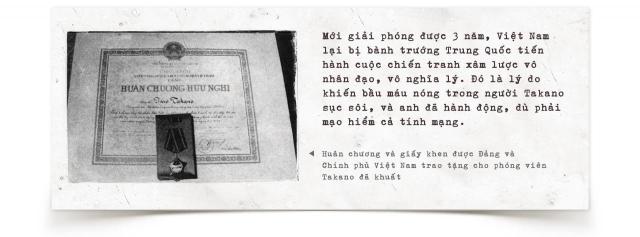 HUÂN CHƯƠNG HỮU NGHỊ
Isao Takano
Mới giải phóng được 3 năm, Việt Nam
lại bị bành trướng Trung Quốc tiến
hành cuộc chiến tranh xâm lược vô
nhân đạo, vô nghĩa lý. Đó là lý do
khiến bầu máu nóng trong người Takano
sục sôi, và anh đã hành động, dù phải
mạo hiểm cả tính mạng.
Huân chương và giấy khen được Đảng và
Chính phủ Việt Nam trao tặng cho phóng viên
Takano đã khuất